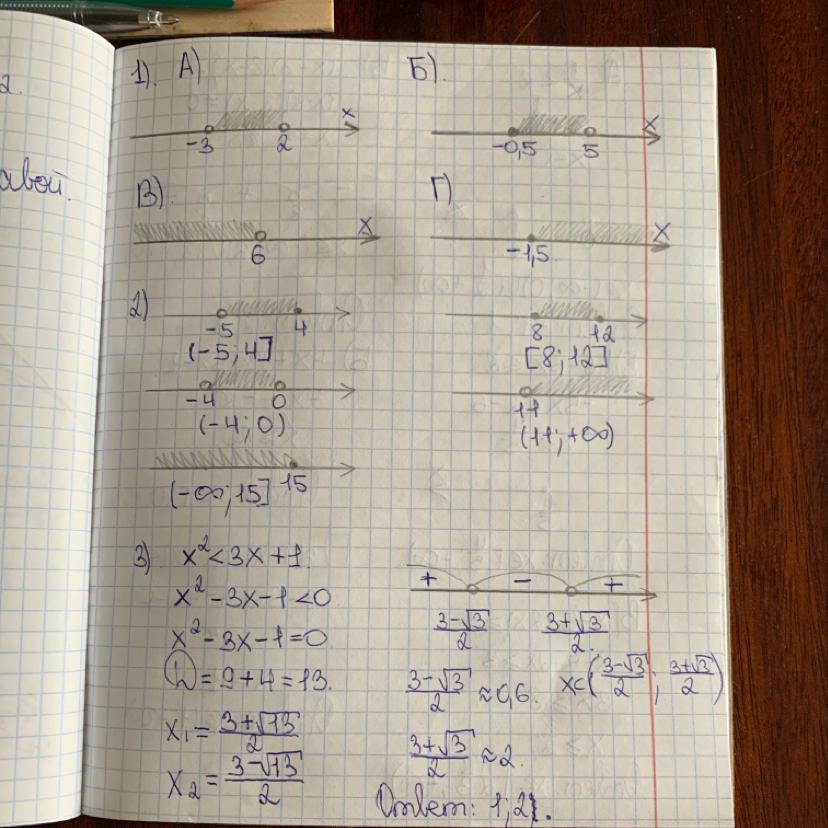 2.
авой.
1). А)
Б).
x
-3 2
x
-0,5 5
В)
Г)
x
6
x
-1,5
2)
-5 4
(-5; 4]
8 12
[8; 12]
-4 0
(-4; 0)
11
(11; +∞)
15
(-∞; 15]
3) x² < 3x + 1
x² - 3x - 1 < 0
x² - 3x - 1 = 0
D = 9 + 4 = 13.
x₁ = (3+√13)/2
x₂ = (3-√13)/2
+ - +
(3-√3)/2 (3+√3)/2.
(3-√3)/2 ≈ 0,6. x∈((3-√3)/2; (3+√3)/2)
(3+√3)/2 ≈ 2.
Ответ: 1; 2}.